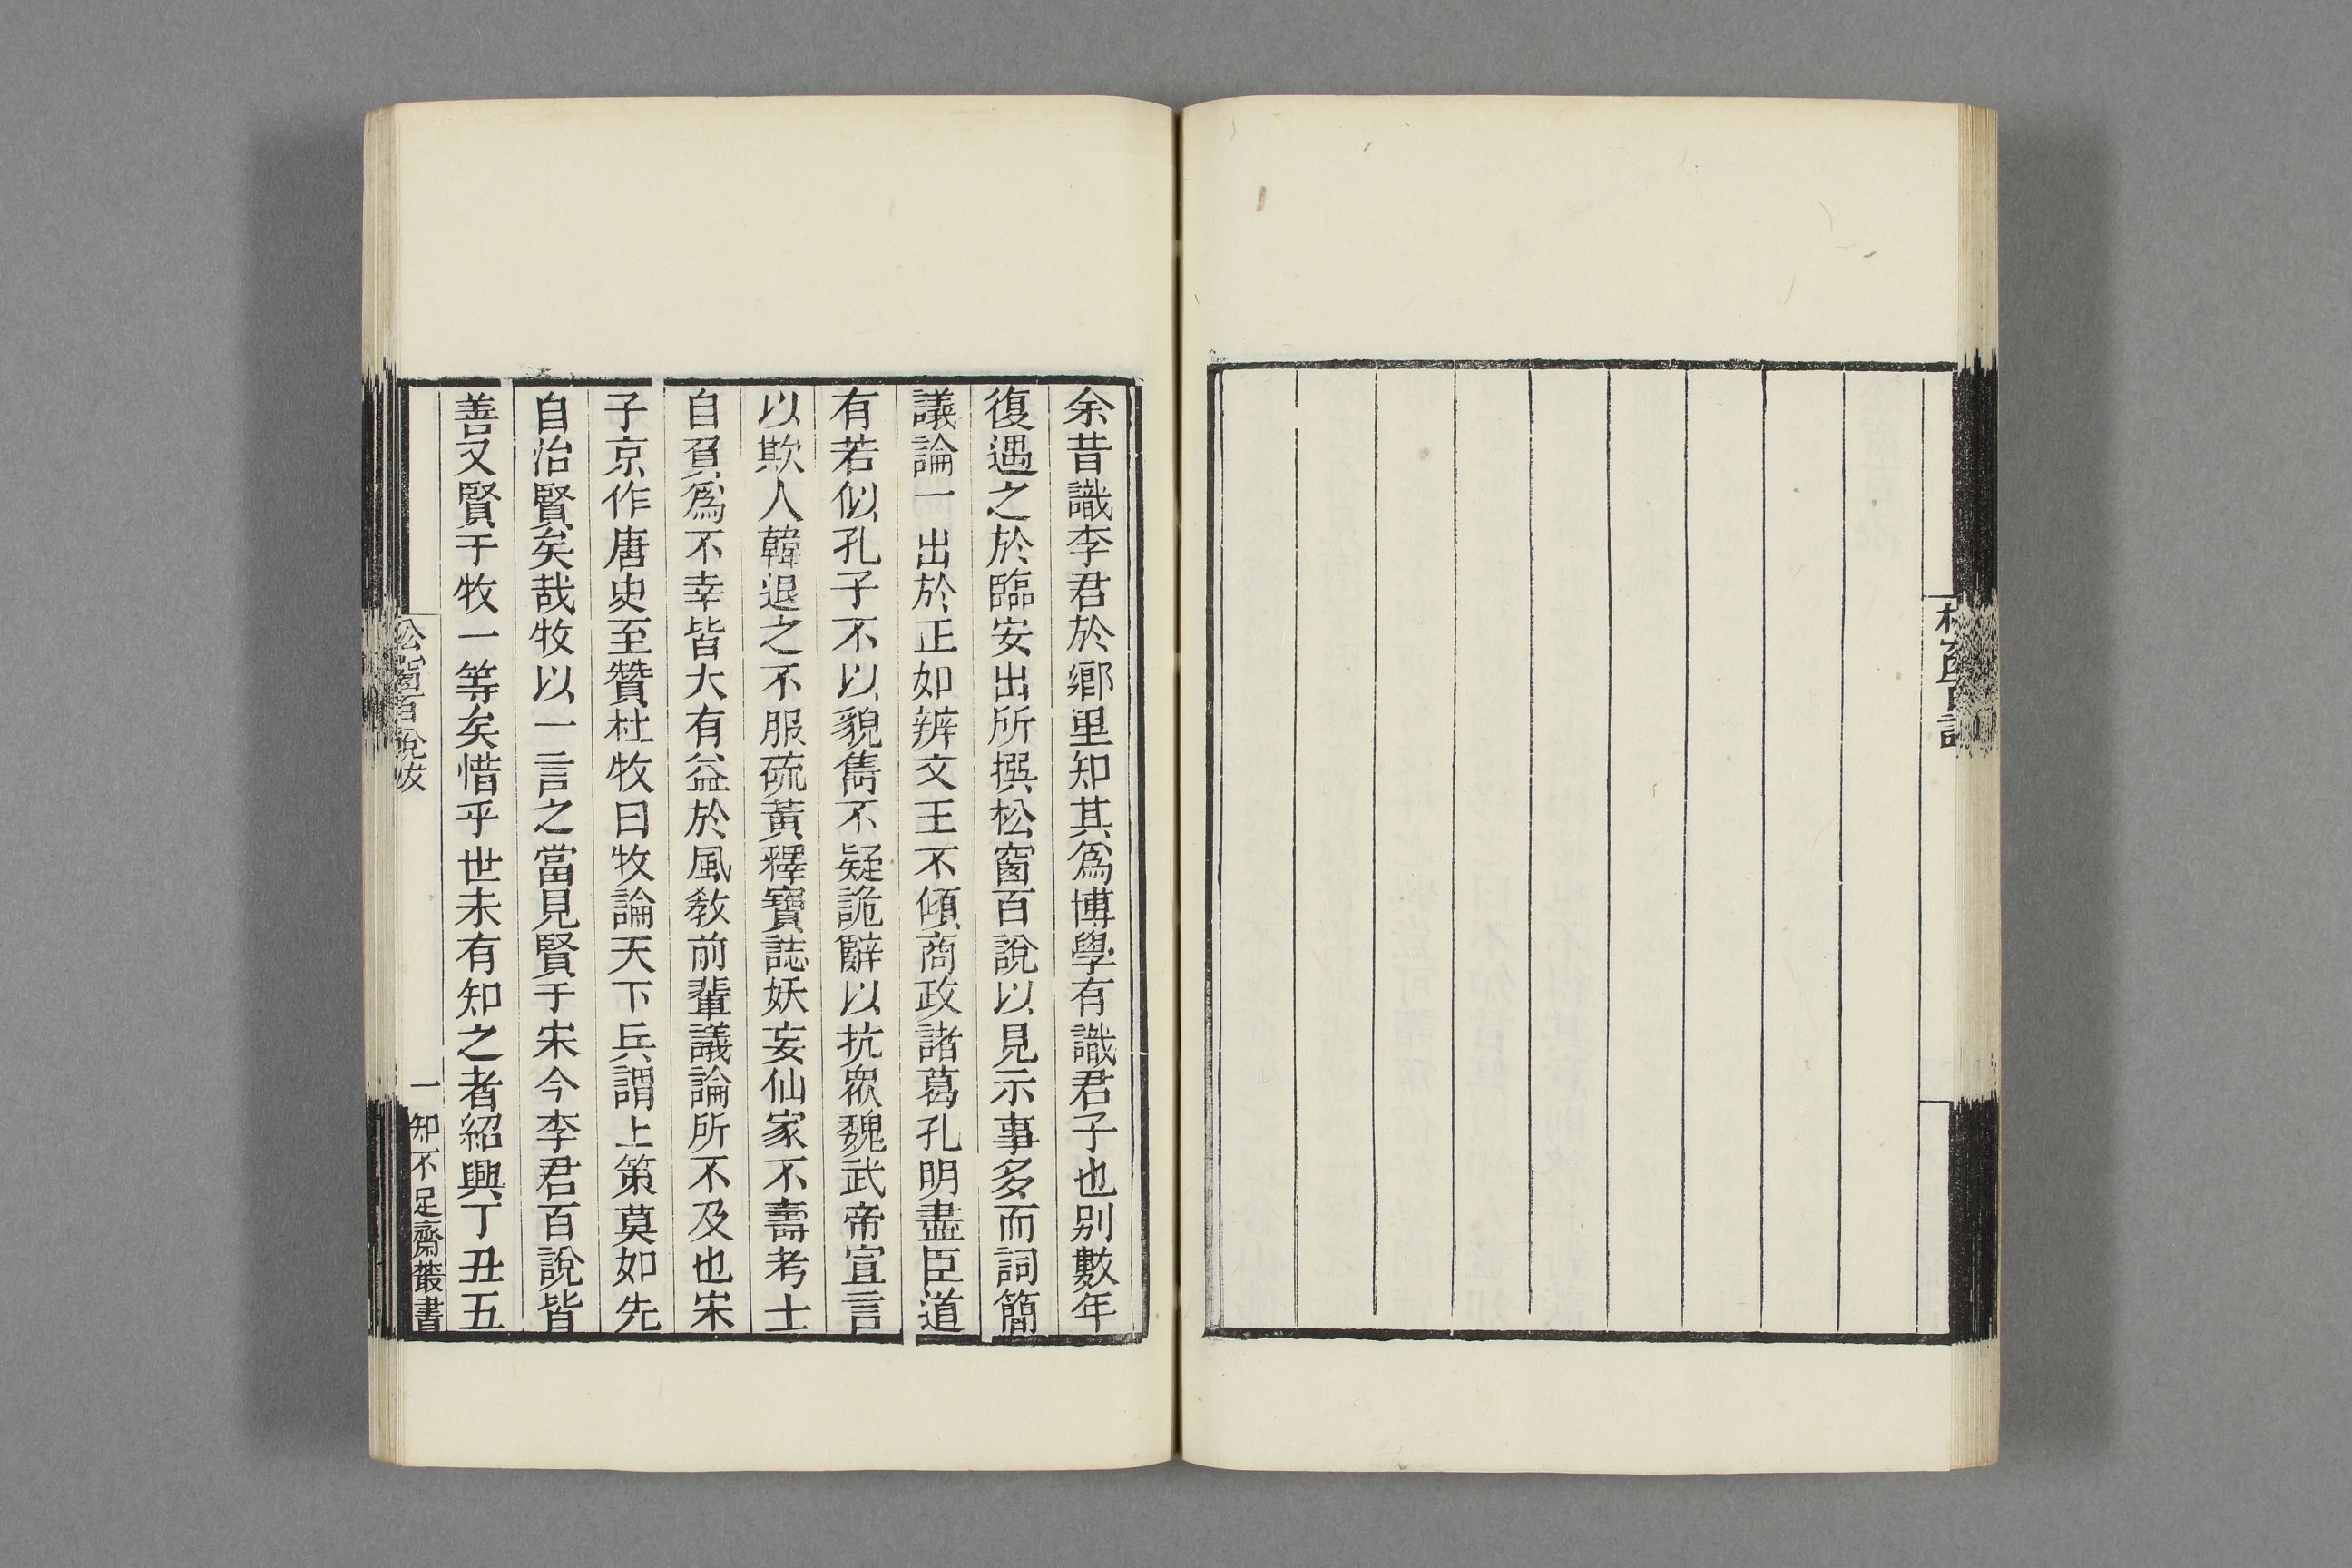 松窗百說
余昔識李君於鄉里知其爲博學有識君子也别數年
復遇之於臨安出所撰松窗百說以見示事多而詞簡
議論一出於正如辨文王不傾商政諸葛孔明盡臣道
有若似孔子不以貌雋不疑詭辭以抗衆魏武帝宣言
以欺人韓退之不服硫黃釋寶誌妖妄仙家不壽考士
自負爲不幸皆大有益於風敎前輩議論所不及也宋
子京作唐史至贊杜牧曰牧論天下兵謂上策莫如先
自治賢矣哉牧以一言之當見賢于宋今李君百說皆
善又賢于牧一等矣惜乎世未有知之者紹興丁丑五
松窗百說跋 一 知不足齋叢書